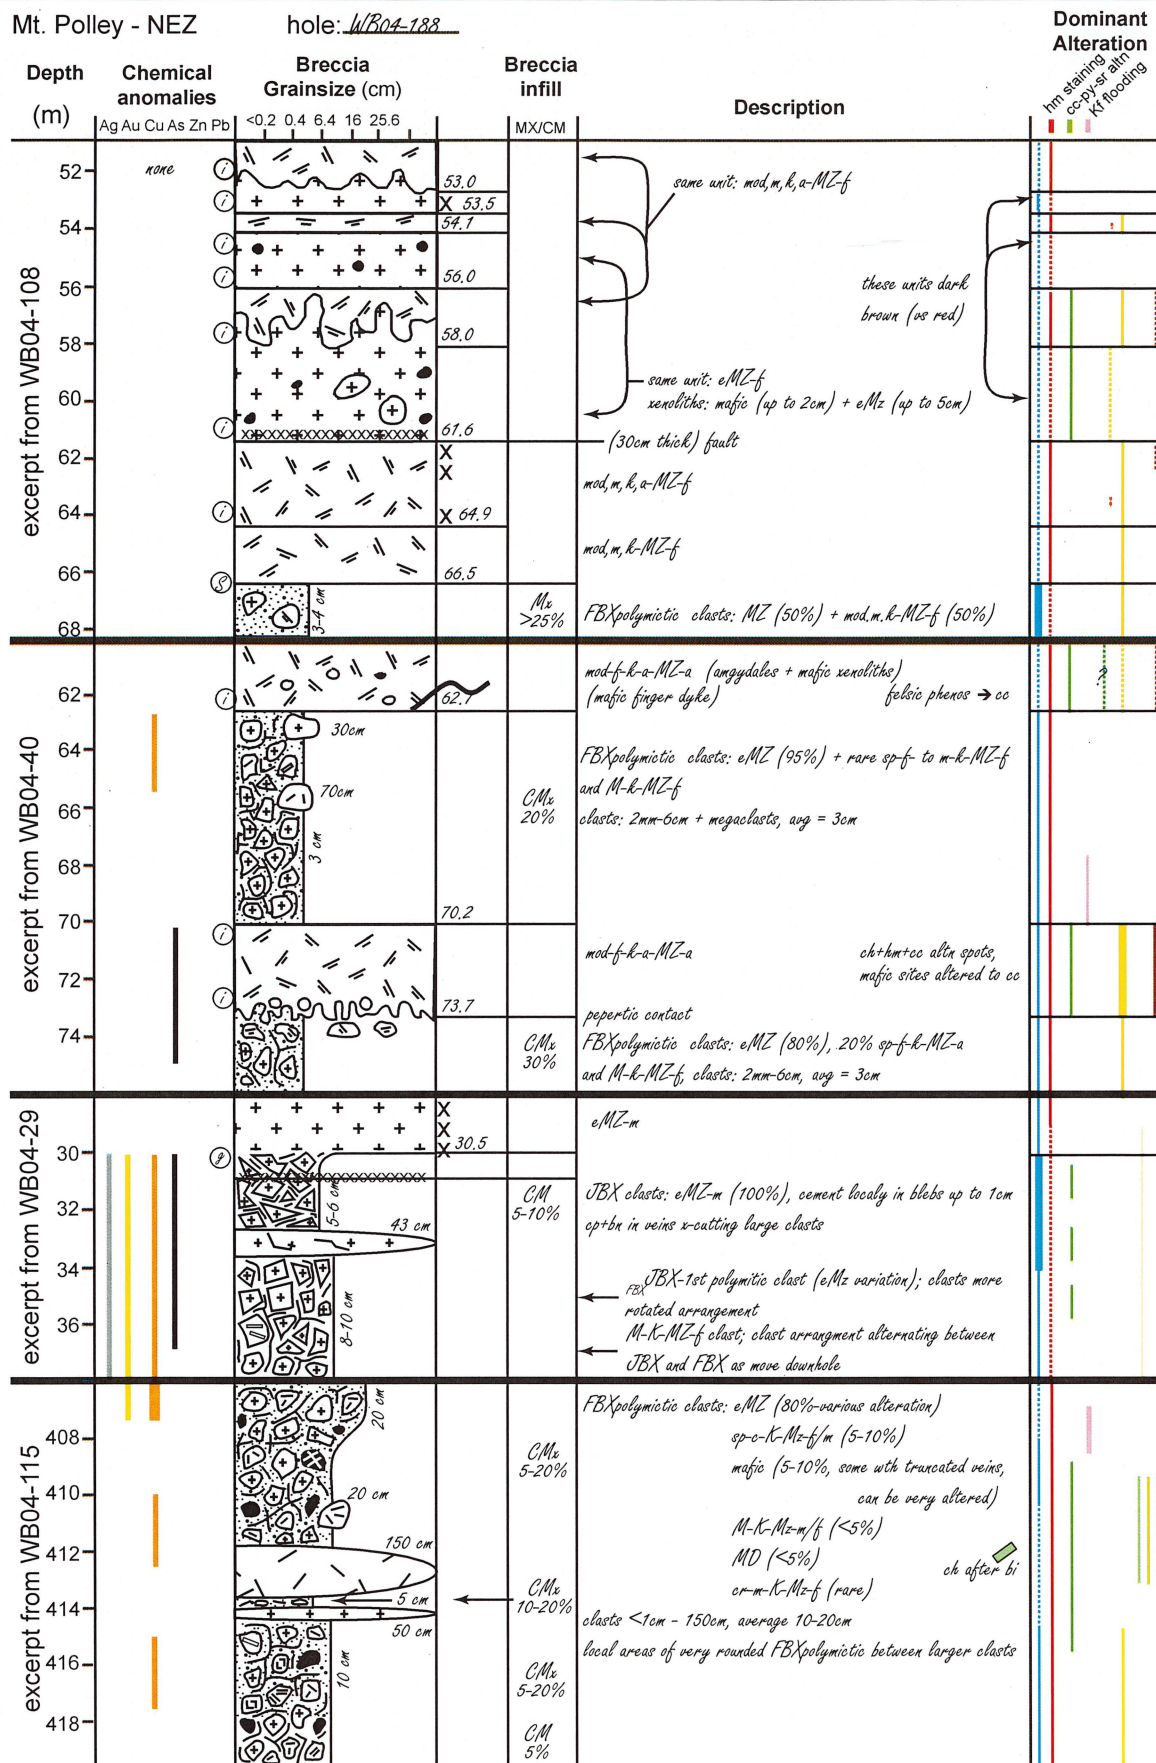 Mt. Polley - NEZ
hole: WB04-188
Dominant
Alteration
Depth
(m)
Chemical
anomalies
Ag Au Cu As Zn Pb
Breccia
Grainsize (cm)
<0.2 0.4 6.4 16 25.6
Breccia
infill
MX/CM
Description
hm staining
cc-py-sr altn
Kf flooding
excerpt from WB04-108
52
54
56
58
60
62
64
66
68
none
i
i
i
i
i
i
i
S
53.0
X 53.5
54.1
56.0
58.0
61.6
X
X
X 64.9
66.5
3-4 cm
Mx
>25%
same unit: mod,m,k,a-MZ-f
these units dark
brown (vs red)
same unit: eMZ-f
xenoliths: mafic (up to 2cm) + eMz (up to 5cm)
(30cm thick) fault
mod,m,k,a-MZ-f
mod,m,k-MZ-f
FBXpolymictic clasts: MZ (50%) + mod.m.k-MZ-f (50%)
excerpt from WB04-40
62
64
66
68
70
72
74
i
i
i
62.7
30cm
70cm
3 cm
70.2
73.7
CMx
20%
CMx
30%
mod-f-k-a-MZ-a (amgydales + mafic xenoliths)
(mafic finger dyke)
felsic phenos → cc
FBXpolymictic clasts: eMZ (95%) + rare sp-f- to m-k-MZ-f
and M-k-MZ-f
clasts: 2mm-6cm + megaclasts, avg = 3cm
mod-f-k-a-MZ-a
ch+hm+cc altn spots,
mafic sites altered to cc
pepertic contact
FBXpolymictic clasts: eMZ (80%), 20% sp-f-k-MZ-a
and M-k-MZ-f, clasts: 2mm-6cm, avg = 3cm
excerpt from WB04-29
30
32
34
36
g
X
X
X 30.5
5-6 cm
43 cm
8-10 cm
CM
5-10%
eMZ-m
JBX clasts: eMZ-m (100%), cement localy in blebs up to 1cm
cp+bn in veins x-cutting large clasts
FBX JBX-1st polymitic clast (eMz variation); clasts more
rotated arrangement
M-K-MZ-f clast; clast arrangment alternating between
JBX and FBX as move downhole
excerpt from WB04-115
408
410
412
414
416
418
20 cm
20 cm
150 cm
5 cm
50 cm
10 cm
CMx
5-20%
CMx
10-20%
CMx
5-20%
CM
5%
FBXpolymictic clasts: eMZ (80%-various alteration)
sp-c-K-Mz-f/m (5-10%)
mafic (5-10%, some wth truncated veins,
can be very altered)
M-K-Mz-m/f (<5%)
MD (<5%)
ch after bi
cr-m-K-Mz-f (rare)
clasts <1cm - 150cm, average 10-20cm
local areas of very rounded FBXpolymictic between larger clasts